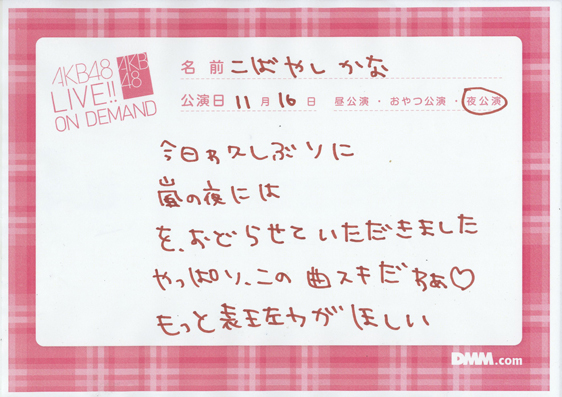 AKB48
LIVE!!
ON DEMAND
AKB
48
名前 こばやし かな
公演日 11月16日 昼公演・おやつ公演・夜公演
今日わ久しぶりに
嵐の夜には
を、おどらせていただきました
やっぱり、この曲スキだわぁ♡
もっと表王左力がほしい
DMM.com